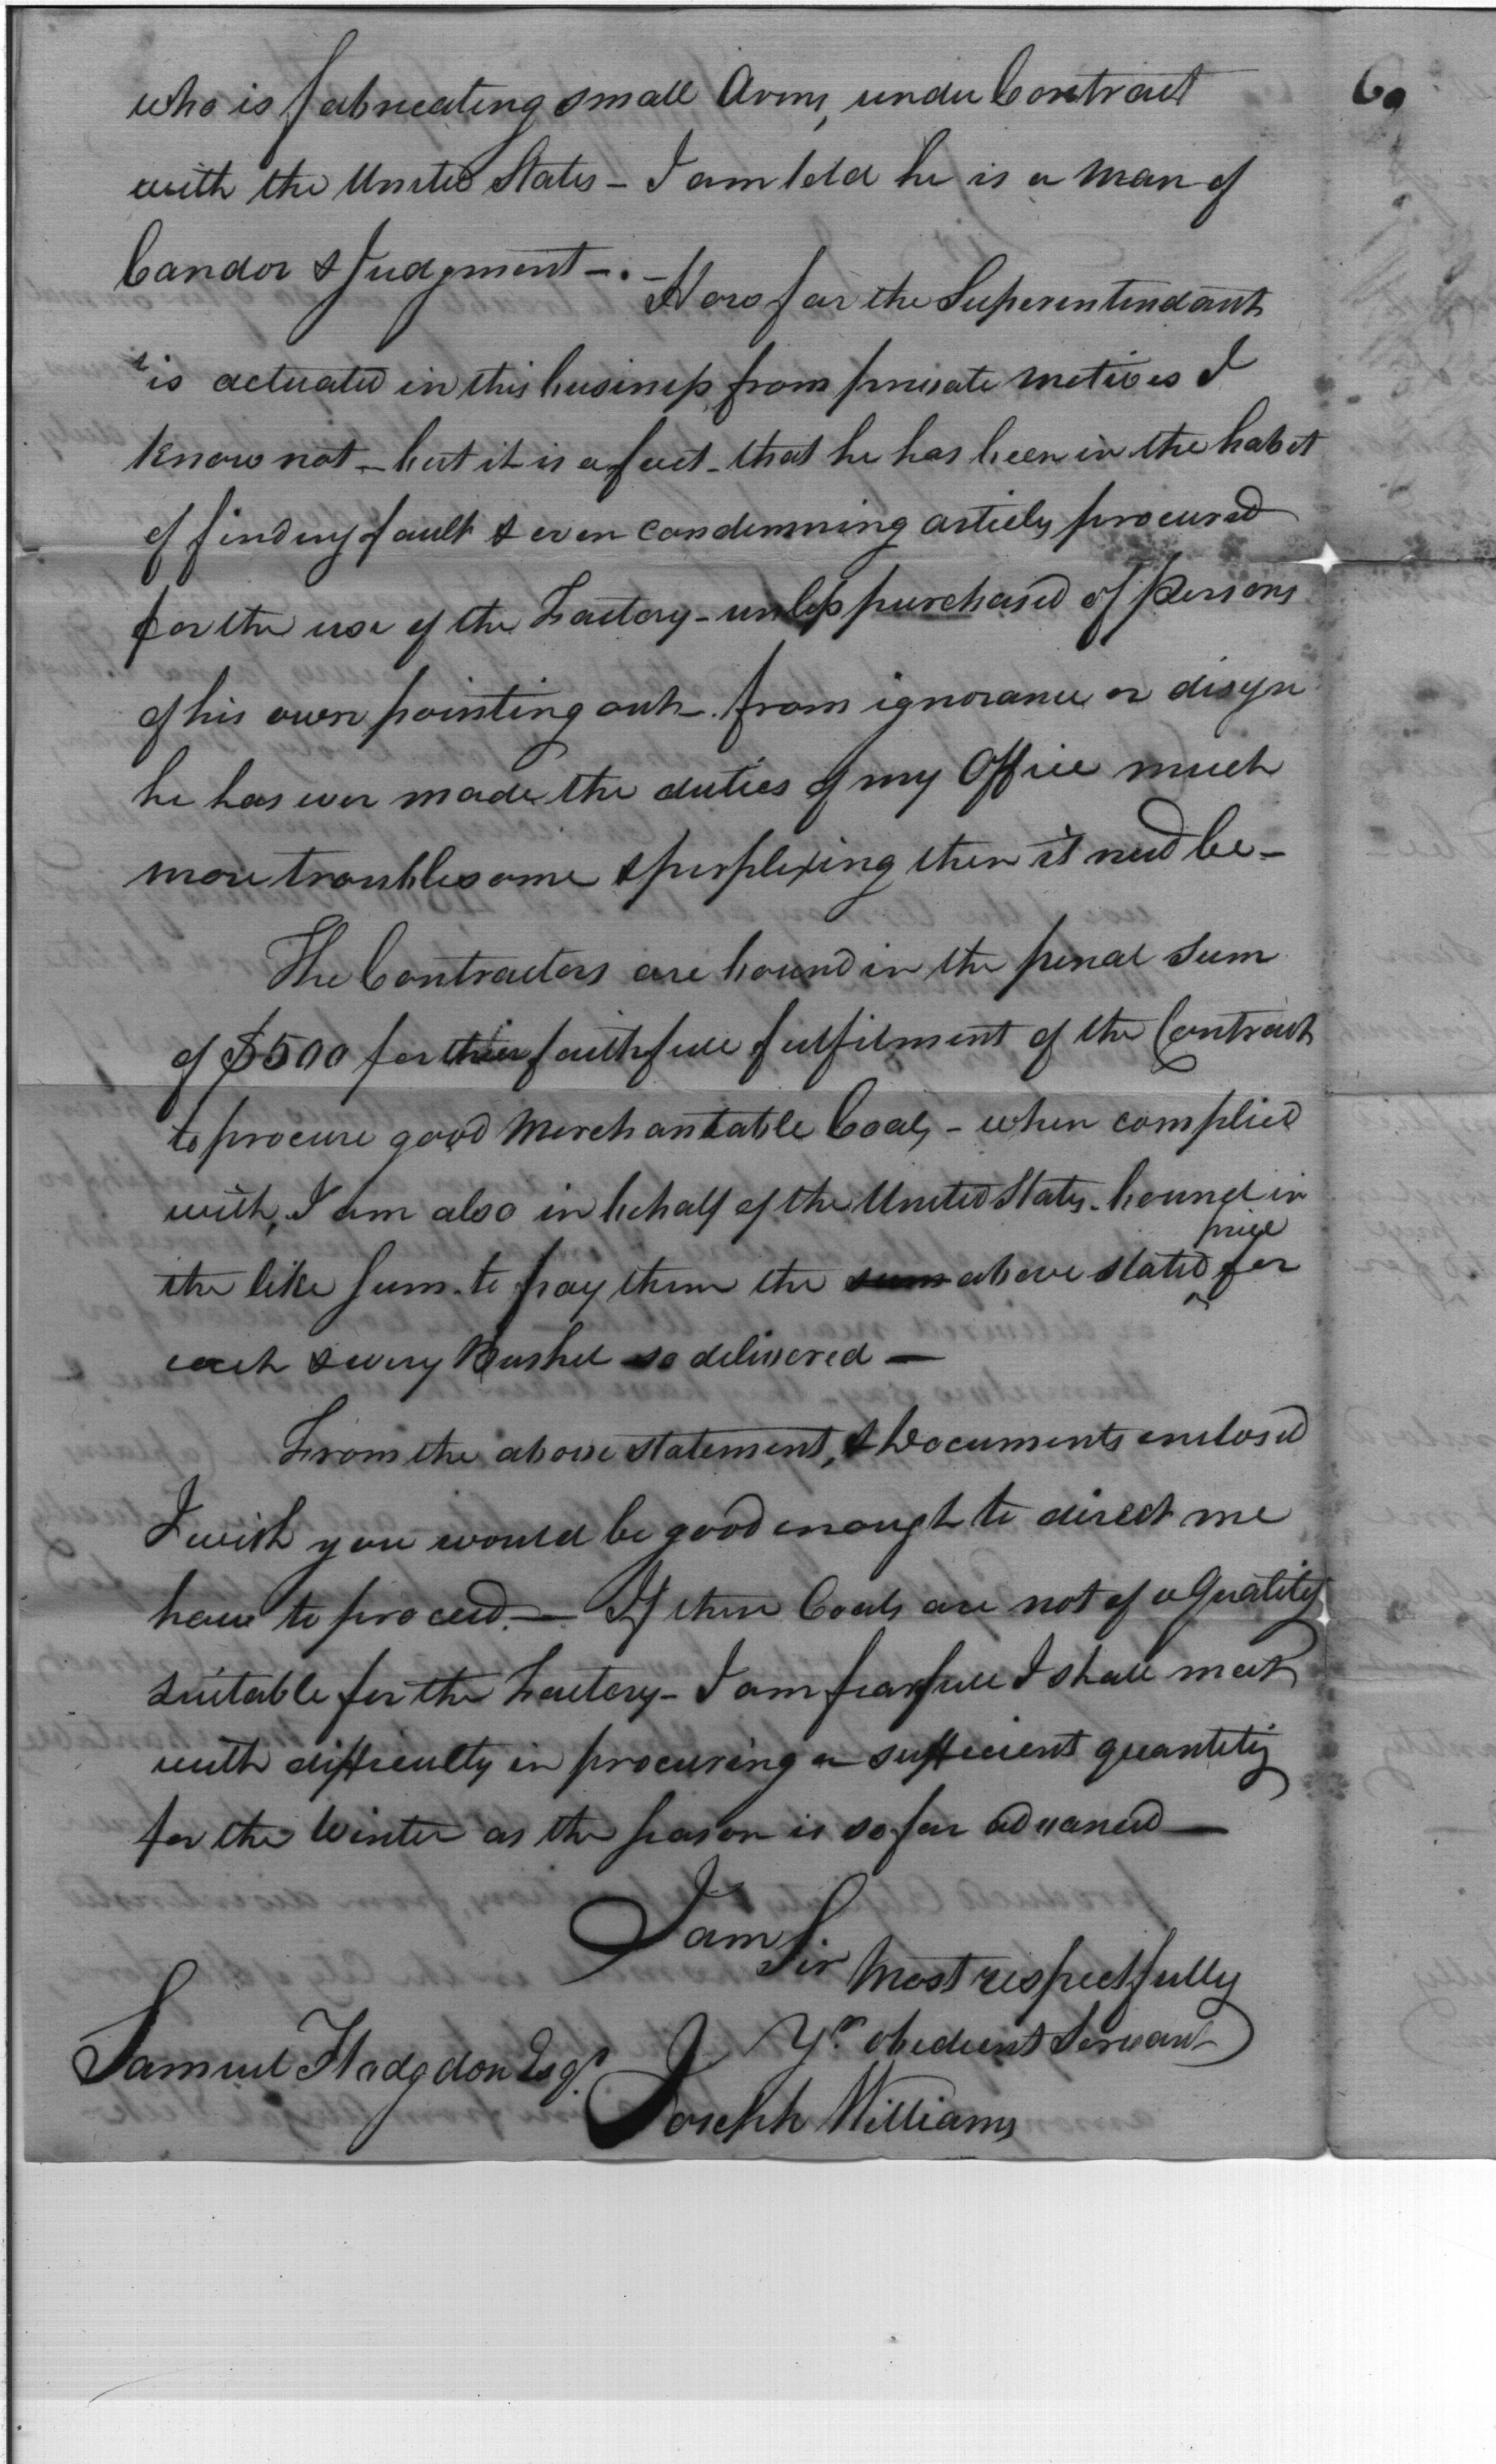 who is fabricating small Arms, under Contract
with the United States – I am told he is a Man of
Candor & Judgment –. –
How far the Superintendant
is actuated in this business from private motives I
know not – but it is a fact – that he has been in the habit
of finding fault & even condemning articles procured
for the use of the Factory – unless purchased of persons
of his own pointing out – from ignorance or disign
he has ever made the duties of my Office much
more troublesome & perplexing then it need be –
The Contractors are bound in the penal Sum
of $500 for their faithfull fulfilment of the Contract
to procure good Merchantable Coals, – when complied
with, I am also in behalf of the United States bound in
price
the like Sum to pay them the sum above stated for
each & every Bushel so delivered —
From the above statement, & Documents enclosed
I wish you would be good enough to direct me
how to proceed. — If these Coals are not of a Quality
suitable for the Factory – I am fearfull I shall meet
with difficulty in procuring a sufficient quantity
for the Winter as the season is so far advanced —
I am Sir
Most respectfully
Yr. obedient Servant
Samuel Hodgdon Esqr.
Joseph Williams